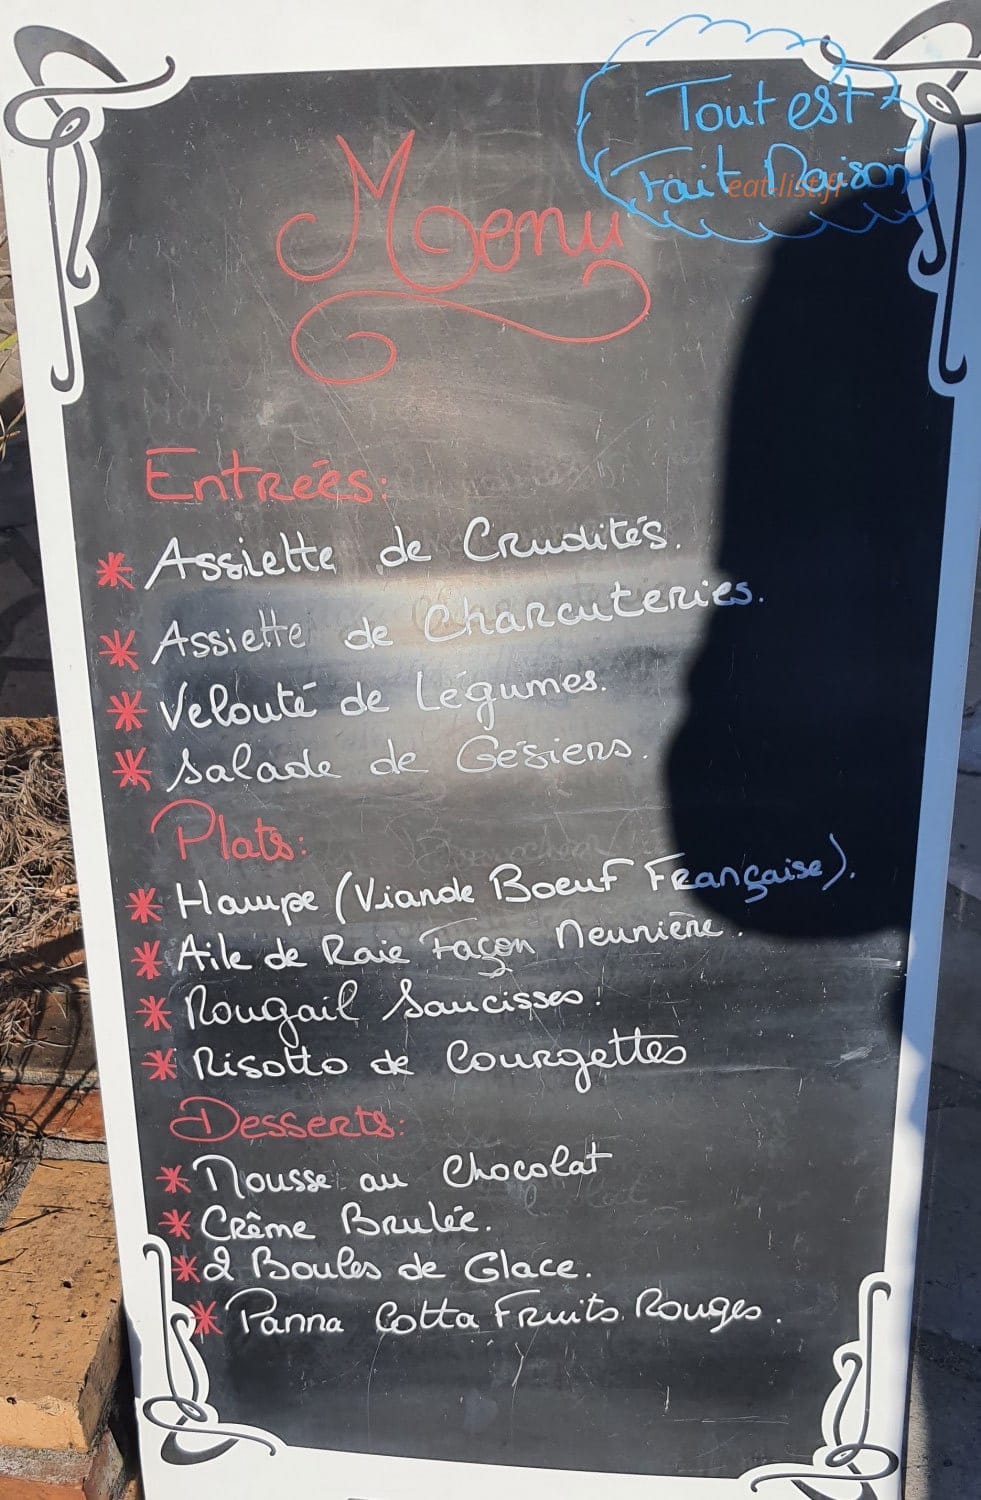 Tout est
Fait Maison
eat-list.fr
Menu
Entrées:
* Assiette de Crudités.
* Assiette de Charcuteries.
* Velouté de Légumes.
* Salade de Gésiers.
Plats:
* Hampe (Viande Boeuf Française).
* Aile de Raie Façon Meunière.
* Rougail Saucisses.
* Risotto de Courgettes
Desserts:
* Mousse au Chocolat
* Crême Brulée.
* 2 Boules de Glace.
* Panna Cotta Fruits Rouges.